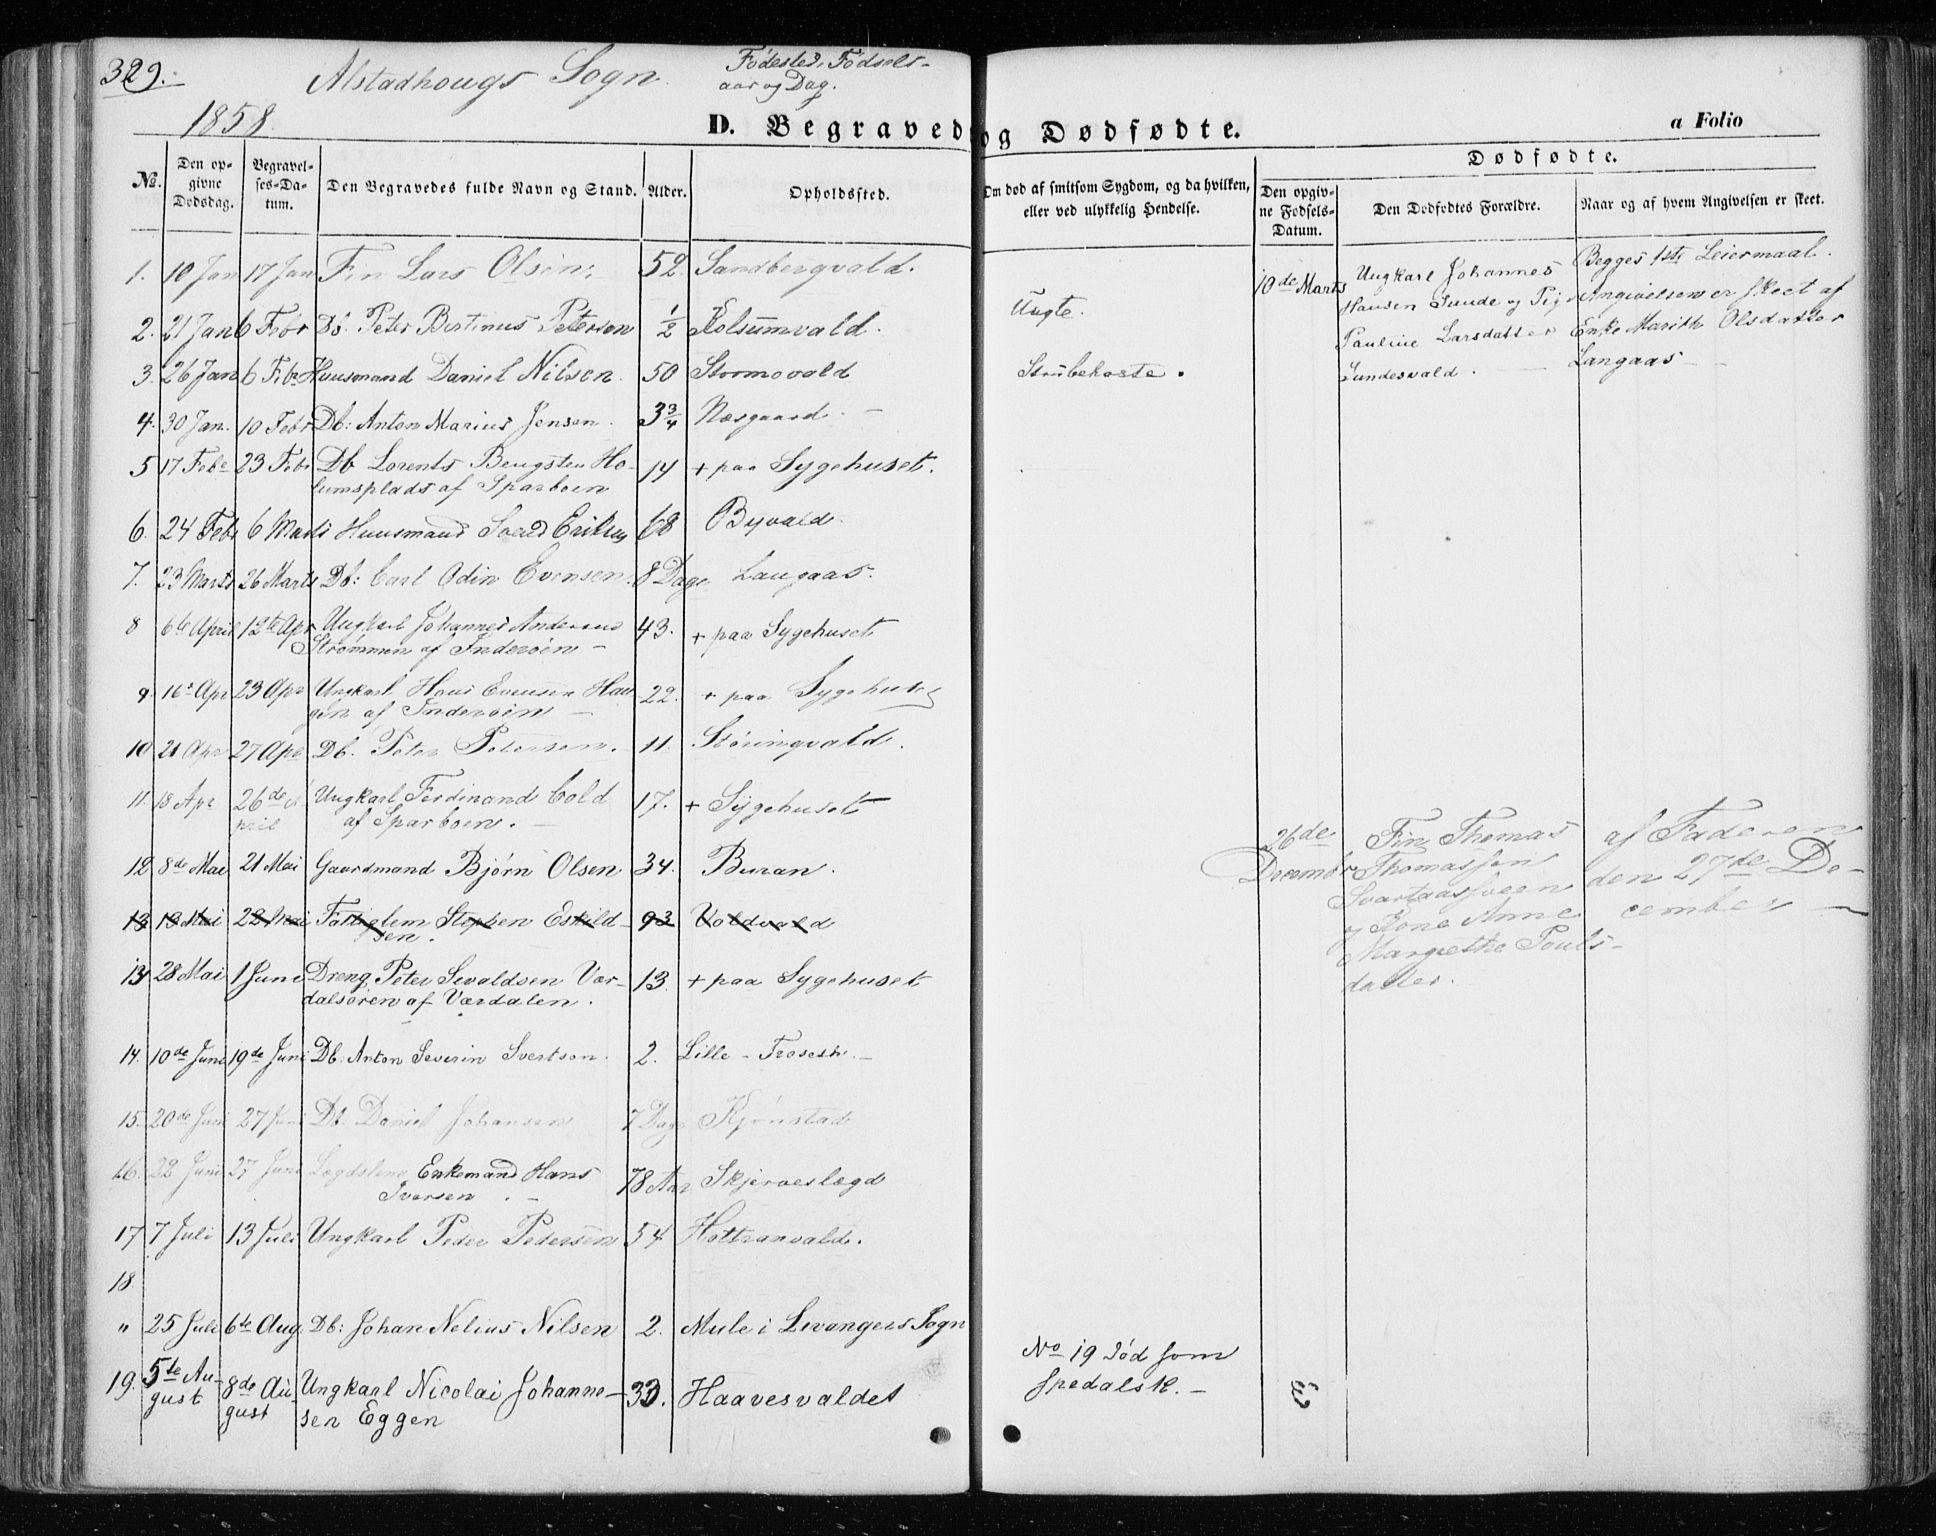 329.
Alstadhougs Sogn.
Fødested, Fødsels-
aar og Dag.
1858
D. Begravede og Dødfødte.
a Folio
No.
Den op-
givne
Dødsdag.
Begravel-
ses-Da-
tum.
Den Begravedes fulde Navn og Stand.
Alder.
Opholdssted.
Om død af smitsom Sygdom, og da hvilken,
eller ved ulykkelig Hendelse.
Dødfødte.
Den opgiv-
ne Fødsels-
Datum.
Den Dødfødtes Forældre.
Naar og af hvem Angivelsen er skeet.
1. 10 Jan 17 Jan Fin Lars Olsen. 52. Sandbergvald.
2. 21 Jan 6 Febr Db: Peter Bertinus Petersen ½ Kolsumvald. Uægte.
3. 26 Jan 6 Febr Huusmand Daniel Nilsen. 50 Stormovald Strubehoste.
4. 30 Jan. 10 Febr Db: Anton Marius Jensen. 3¾ Næsgaard. –
5 17 Febr 23 Febr Db Lorents Bengsten Ho-
lumsplads af Sparboen 14 + paa Sygehuset.
6. 24 Febr 6 Marts Huusmand Eriksen 68 Byvald.
7. 23 Marts 26 Marts Db: Carl Odin Evensen. 8 Dage Langaas.
8 6te April 12te Apr Ungkarl Johannes Andersen
Strømmen af Inderøen – 43. + paa Sygehuset
9. 16 Apr 23 Apr Ungkarl Hans Evensen Hau-
gen af Inderøen – 22. + paa Sygehuset
10 21 Apr 27 Apr Db. Peter Petersen. 11. Støringvald.
11. 18 Apr 26de A-
pril Ungkarl Ferdinand Cold
af Sparboen. – 17. + Sygehuset
12 8de Mai 21 Mai Gaardmand Bjørn Olsen 34. Buran.
13 13 Mai 22 Mai Fattiglem Stephen Eskild-
sen. 93 Voldvald
13 28 Mai 1 Juni Dreng Peter Sevaldsen Vær-
dalsøren af Værdalen. 13 + paa Sygehuset
14. 10de Juni 19de Juni Db: Anton Severin Sivertsen. 2. Lille –
15. 20de Juni 27 Juni Db. Daniel Johansen 7 Dage Kjønstad
16. 22 Juni 27 Juni Lægdslem Enkemand Hans
Iversen. – 78 Aar Skjerveslægd
17 7 Juli 13 Juli Ungkarl Peder Pedersen 54 Hottranvald.
18.
" 25 Juli 6te Aug Db: Johan Nelius Nilsen 2. Mule i Levangers Sogn
19. 5te Au-
gust 8de Au-
gust Ungkarl Nicolai Johanne-
sen Eggen 33. Haavesvaldet
No 19 død som
spedalsk. –
10de Marts
Ungkarl Johannes
Hansen Sunde og Pige
Pauline Larsdatter
Sundesvald.
Begges 1ste Leiermaal.
Angivelsen er skeet af
Enke Marith Olsdatter
Langaas –
26de
December
Fin Thomas
Thomassen
Svartaasveen
og Kone Anne
Margrethe Pouls-
datter.
af Faderen
den 27de De-
cember –